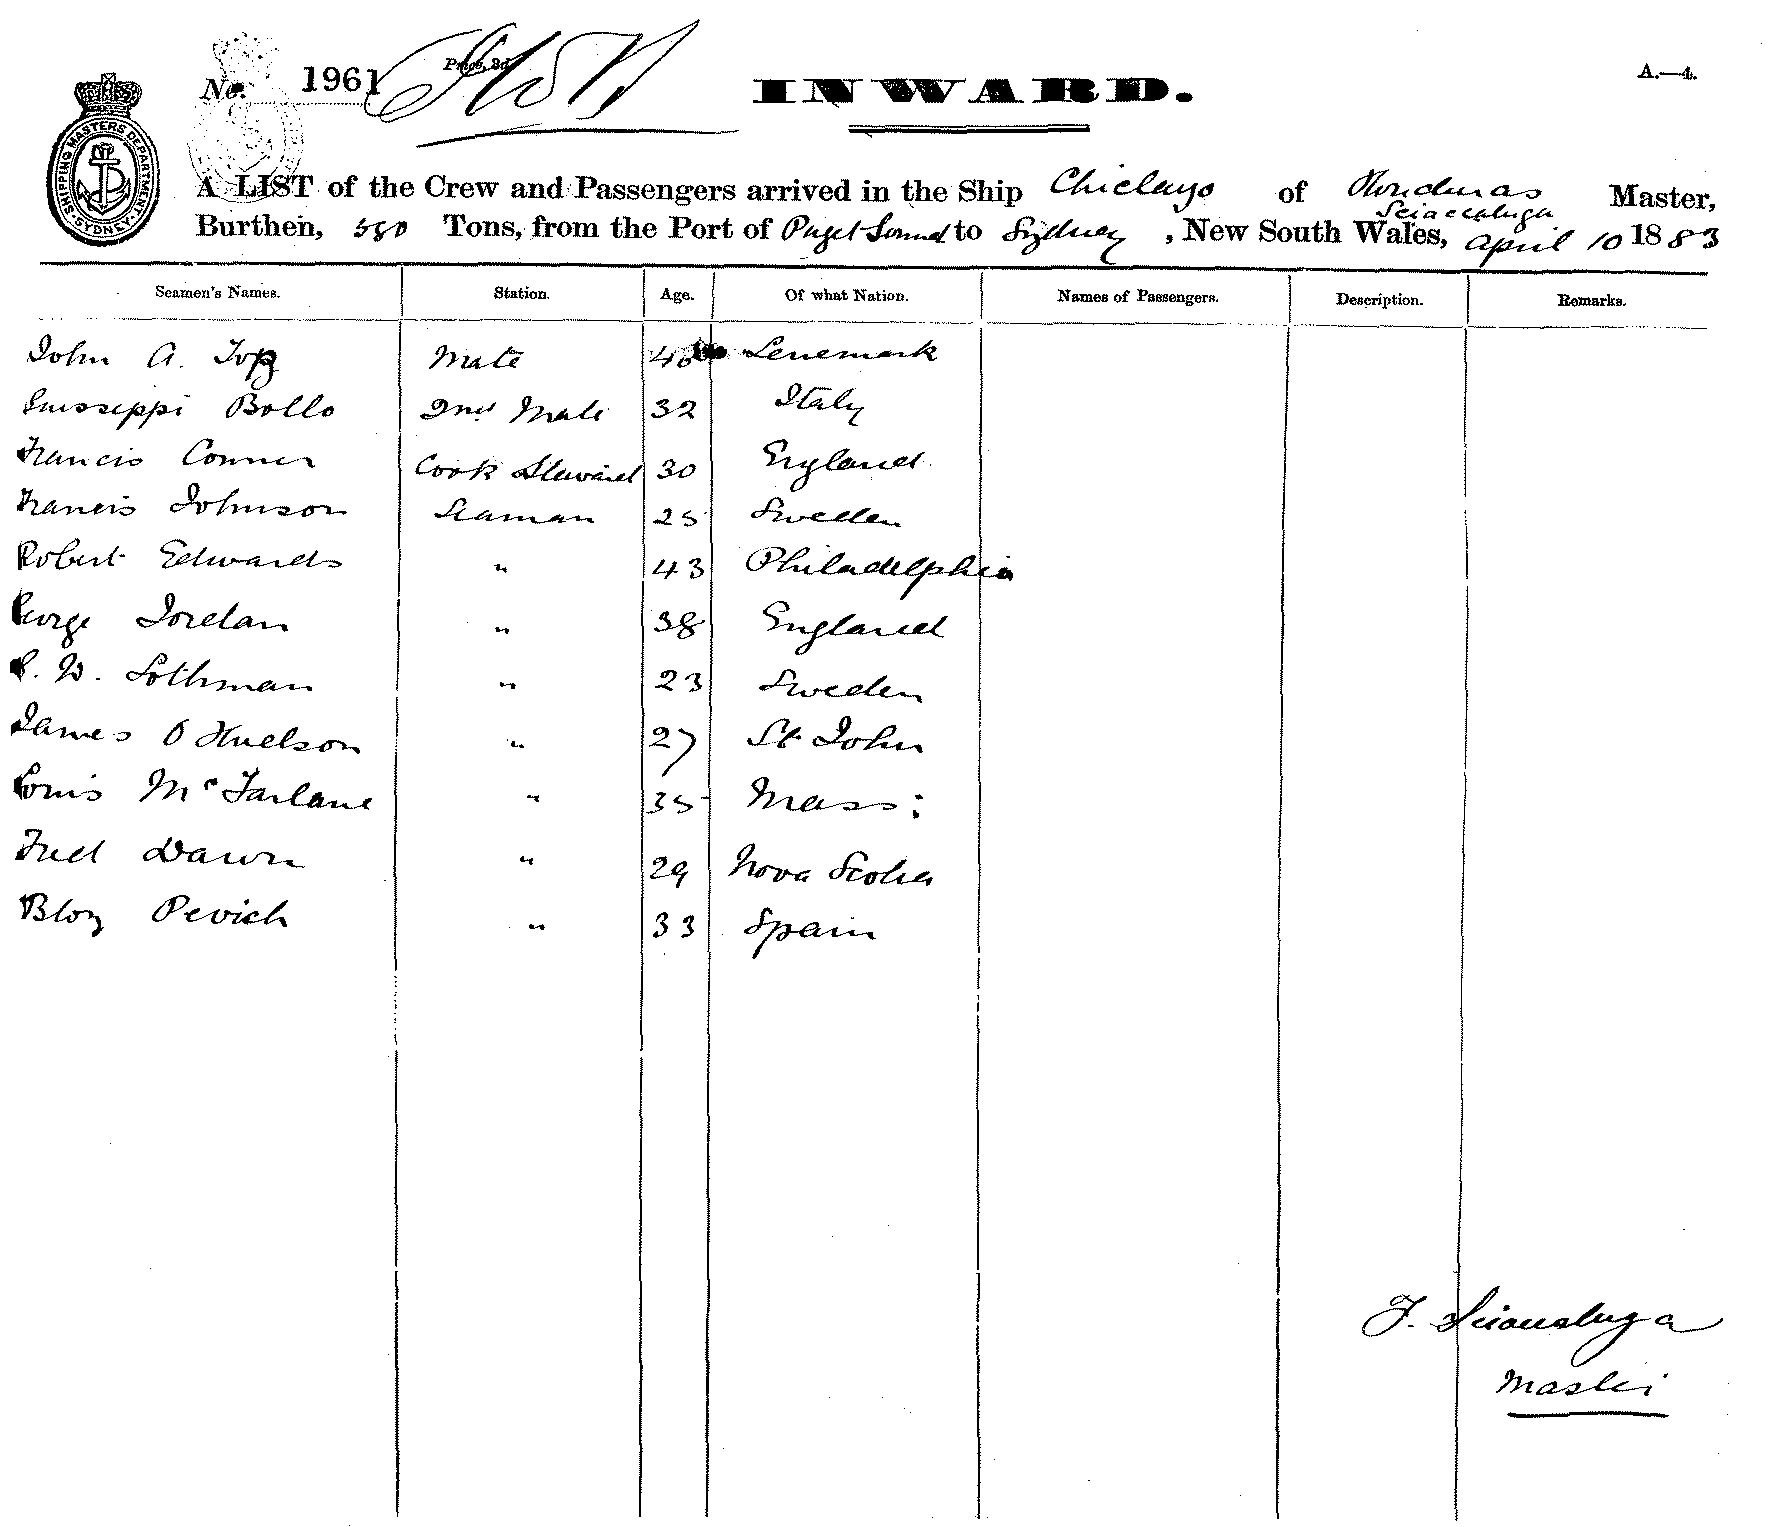 No. 1961 Price, 3d.
INWARD.
A.—4.
SHIPPING MASTERS DEPARTMENT SYDNEY
A LIST of the Crew and Passengers arrived in the Ship Chiclayo of Honduras Master,
Sciaccaluga
Burthen, 580 Tons, from the Port of Puget Sound to Sydney, New South Wales, April 10 1883
Seamen's Names. Station. Age. Of what Nation. Names of Passengers. Description. Remarks.
John A. Mate 40 Denemark
Guisseppi Bollo 2nd Mate 32 Italy
Francis Conner Cook Steward 30 England
Francis Johnson Seaman 25 Sweden
Robert Edwards " 43 Philadelphia
George Jordan " 38 England
W. Sothman " 23 Sweden
James O " 27 St John
Louis McFarlane " 35 Mass:
Fred Dawn " 29 Nova Scotia
Pevich " 33 Spain
F. Sciaccaluga
Master